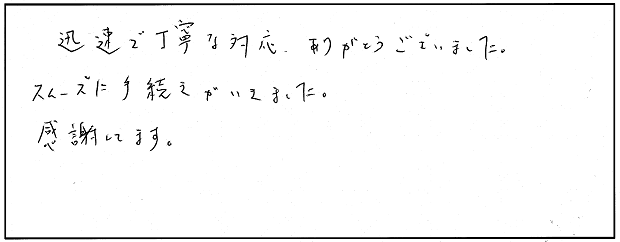 迅速で丁寧な対応、ありがとうございました。
スムーズに手続きができました。
感謝してます。